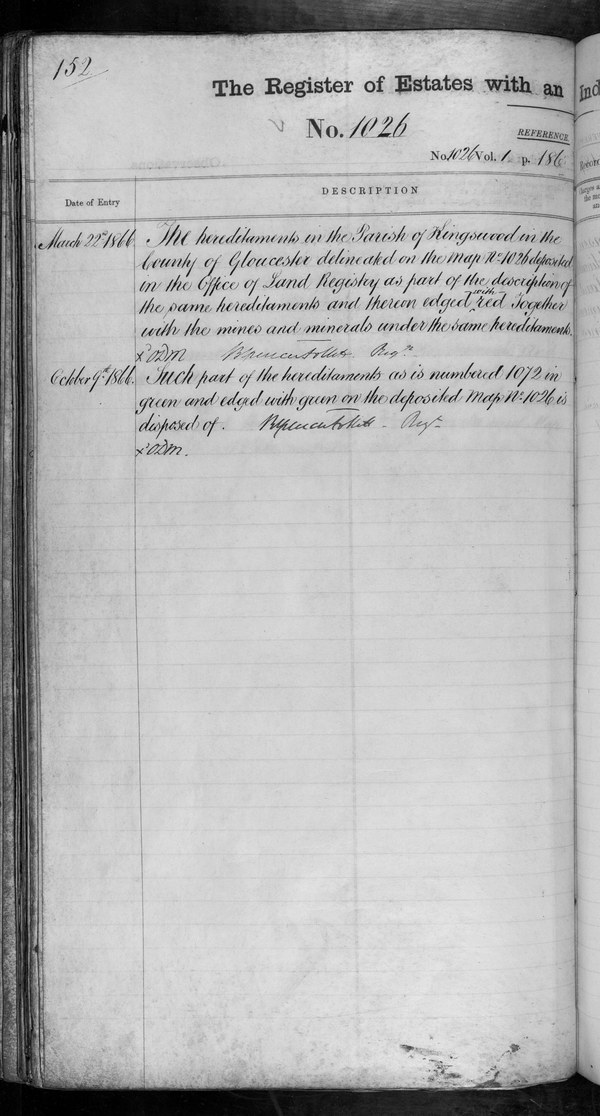 152
The Register of Estates with an Ind
No. 1026
REFERENCE.
No. 1026 Vol. 1 p. 186
Date of Entry
DESCRIPTION
March 22d 1866. The hereditaments in the Parish of Kingswood in the
County of Gloucester delineated on the Map No. 1026 deposited
in the Office of Land Registry as part of the description of
the same hereditaments and thereon edged with red Together
with the mines and minerals under the same hereditaments.
Regr.
October 9th 1866. Such part of the hereditaments as is numbered 1072 in
green and edged with green on the deposited Map No. 1026 is
disposed of. Regr.